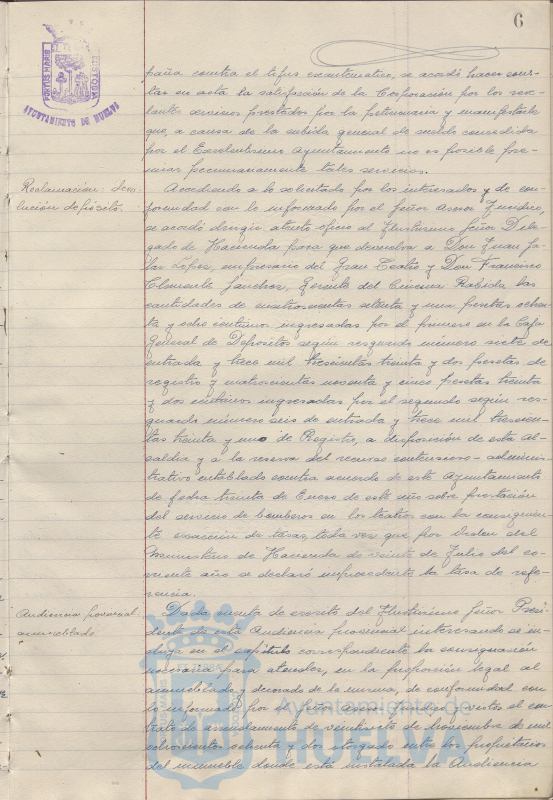 6
PORTUS MARIS ET TERRAE CUSTODIA
AYUNTAMIENTO DE HUELVA
paña contra el tifus exantematico, se acordó hacer cons-
tar en acta la satisfacción de la Corporación por los exce-
lentes servicios prestados por la peticionaria y manifestarle
que, a causa de la subida general de sueldo concedida
por el Excelentisimo Ayuntamiento no es posible pre-
miar pecuniariamente tales servicios.
Reclamación: devo-
lución depósito.
Accediendo a lo solicitado por los interesados y de con-
formidad con lo informado por el Señor Asesor Juridico,
se acordó dirigir atento oficio al Ilustrisimo Señor Dele-
gado de Hacienda para que devuelva a Don Juan
López, empresario del Gran Teatro y Don Francisco
Clemente Sanchez, Gerente del Cinema Rabida las
cantidades de cuatrocientas setenta y una pesetas ochen-
ta y ocho centimos ingresadas por el primero en la Caja
General de Depósitos según resguardo número siete de
entrada y trece mil trescientas treinta y dos pesetas de
registro y cuatrocientas noventa y cinco pesetas treinta
y dos centimos ingresadas por el segundo según res-
guardo número seis de entrada y trece mil trescien-
tas treinta y uno de Registro, a disposición de esta Al-
caldia y a la reserva del recurso contencioso-adminis-
trativo entablado contra acuerdo de este Ayuntamiento
de fecha treinta de Enero de este año sobre prestación
del servicio de bomberos en los teatros con la consiguien-
te exacción de tasas, toda vez que por Orden del
Ministerio de Hacienda de veinte de Julio del co-
rriente año se declaró improcedente la tasa de refe-
rencia.
Audiencia provincial:
amueblado
Dada cuenta de escrito del Ilustrisimo Señor Presi-
dente de esta Audiencia provincial interesando se in-
cluya en el capitulo correspondiente la consignación
necesaria para atender, en la proporción legal al
amueblado y decorado de la misma, de conformidad con
lo informado por el Señor Asesor Juridico y visto el con-
trato de arrendamiento de veintisiete de Noviembre de mil
ochocientos ochenta y dos otorgado entre los propietarios
del inmueble donde está instalada la Audiencia
Ayuntamiento de
HUELVA